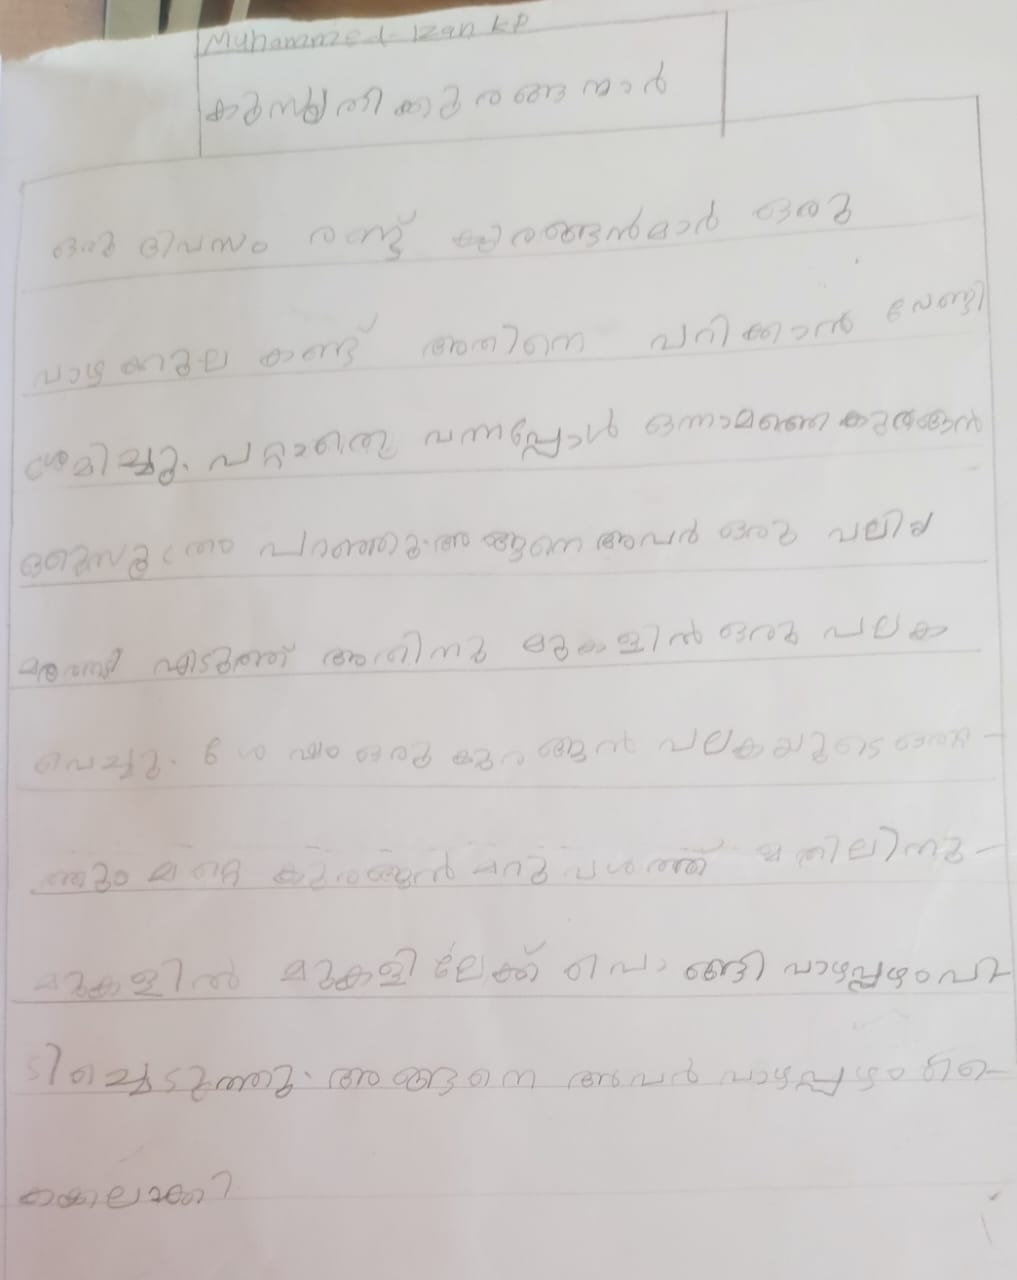 Muhammed Izan KP
കുസൃതി കുരങ്ങന്മാർ
ഒരു ദിവസം രണ്ട് കുരങ്ങൻമാർ ഒരു
വാഴക്കുല കണ്ട് അതിനെ പറിക്കാൻ വേണ്ടി
ശ്രമിച്ചു. പറ്റാതെ വന്നപ്പോൾ ഒന്നാമത്തെ കുരങ്ങൻ
ഒരു സൂത്രം പറഞ്ഞു. അങ്ങനെ അവർ ഒരു വലിയ
എടുത്ത് അതിനു മുകളിൽ ഒരു പലക
വെച്ചു. ശേഷം ഒരു കുരങ്ങൻ പലകയുടെ ഒരറ്റ-
ത്തും മറ്റെ കുരങ്ങൻ മറുവശത്ത് മതിലിനു-
മുകളിൽ മുകളിലേക്ക് പൊങ്ങി വാഴപ്പഴം പി-
ടിച്ചെടുത്തു. അങ്ങനെ അവർ വാഴപ്പഴം
കൈലാക്കി